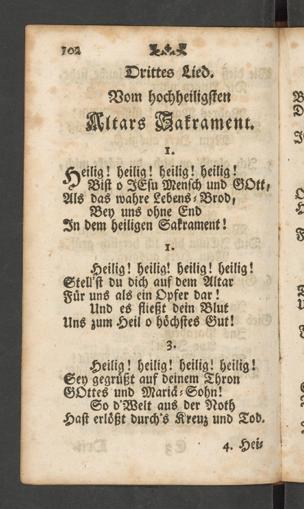 102
Drittes Lied.
Vom hochheiligsten
Altars Sakrament.
1.
Heilig! heilig! heilig! heilig!
Bist o JEsu Mensch und GOtt,
Als das wahre Lebens-Brod,
Bey uns ohne End
In dem heiligen Sakrament!
1.
Heilig! heilig! heilig! heilig!
Stell'st du dich auf dem Altar
Für uns als ein Opfer dar!
Und es fließt dein Blut
Uns zum Heil o höchstes Gut!
3.
Heilig! heilig! heilig! heilig!
Sey gegrüßt auf deinem Thron
GOttes und Mariä-Sohn!
So d'Welt aus der Noth
Hast erlößt durch's Kreuz und Tod.
4. Hei-